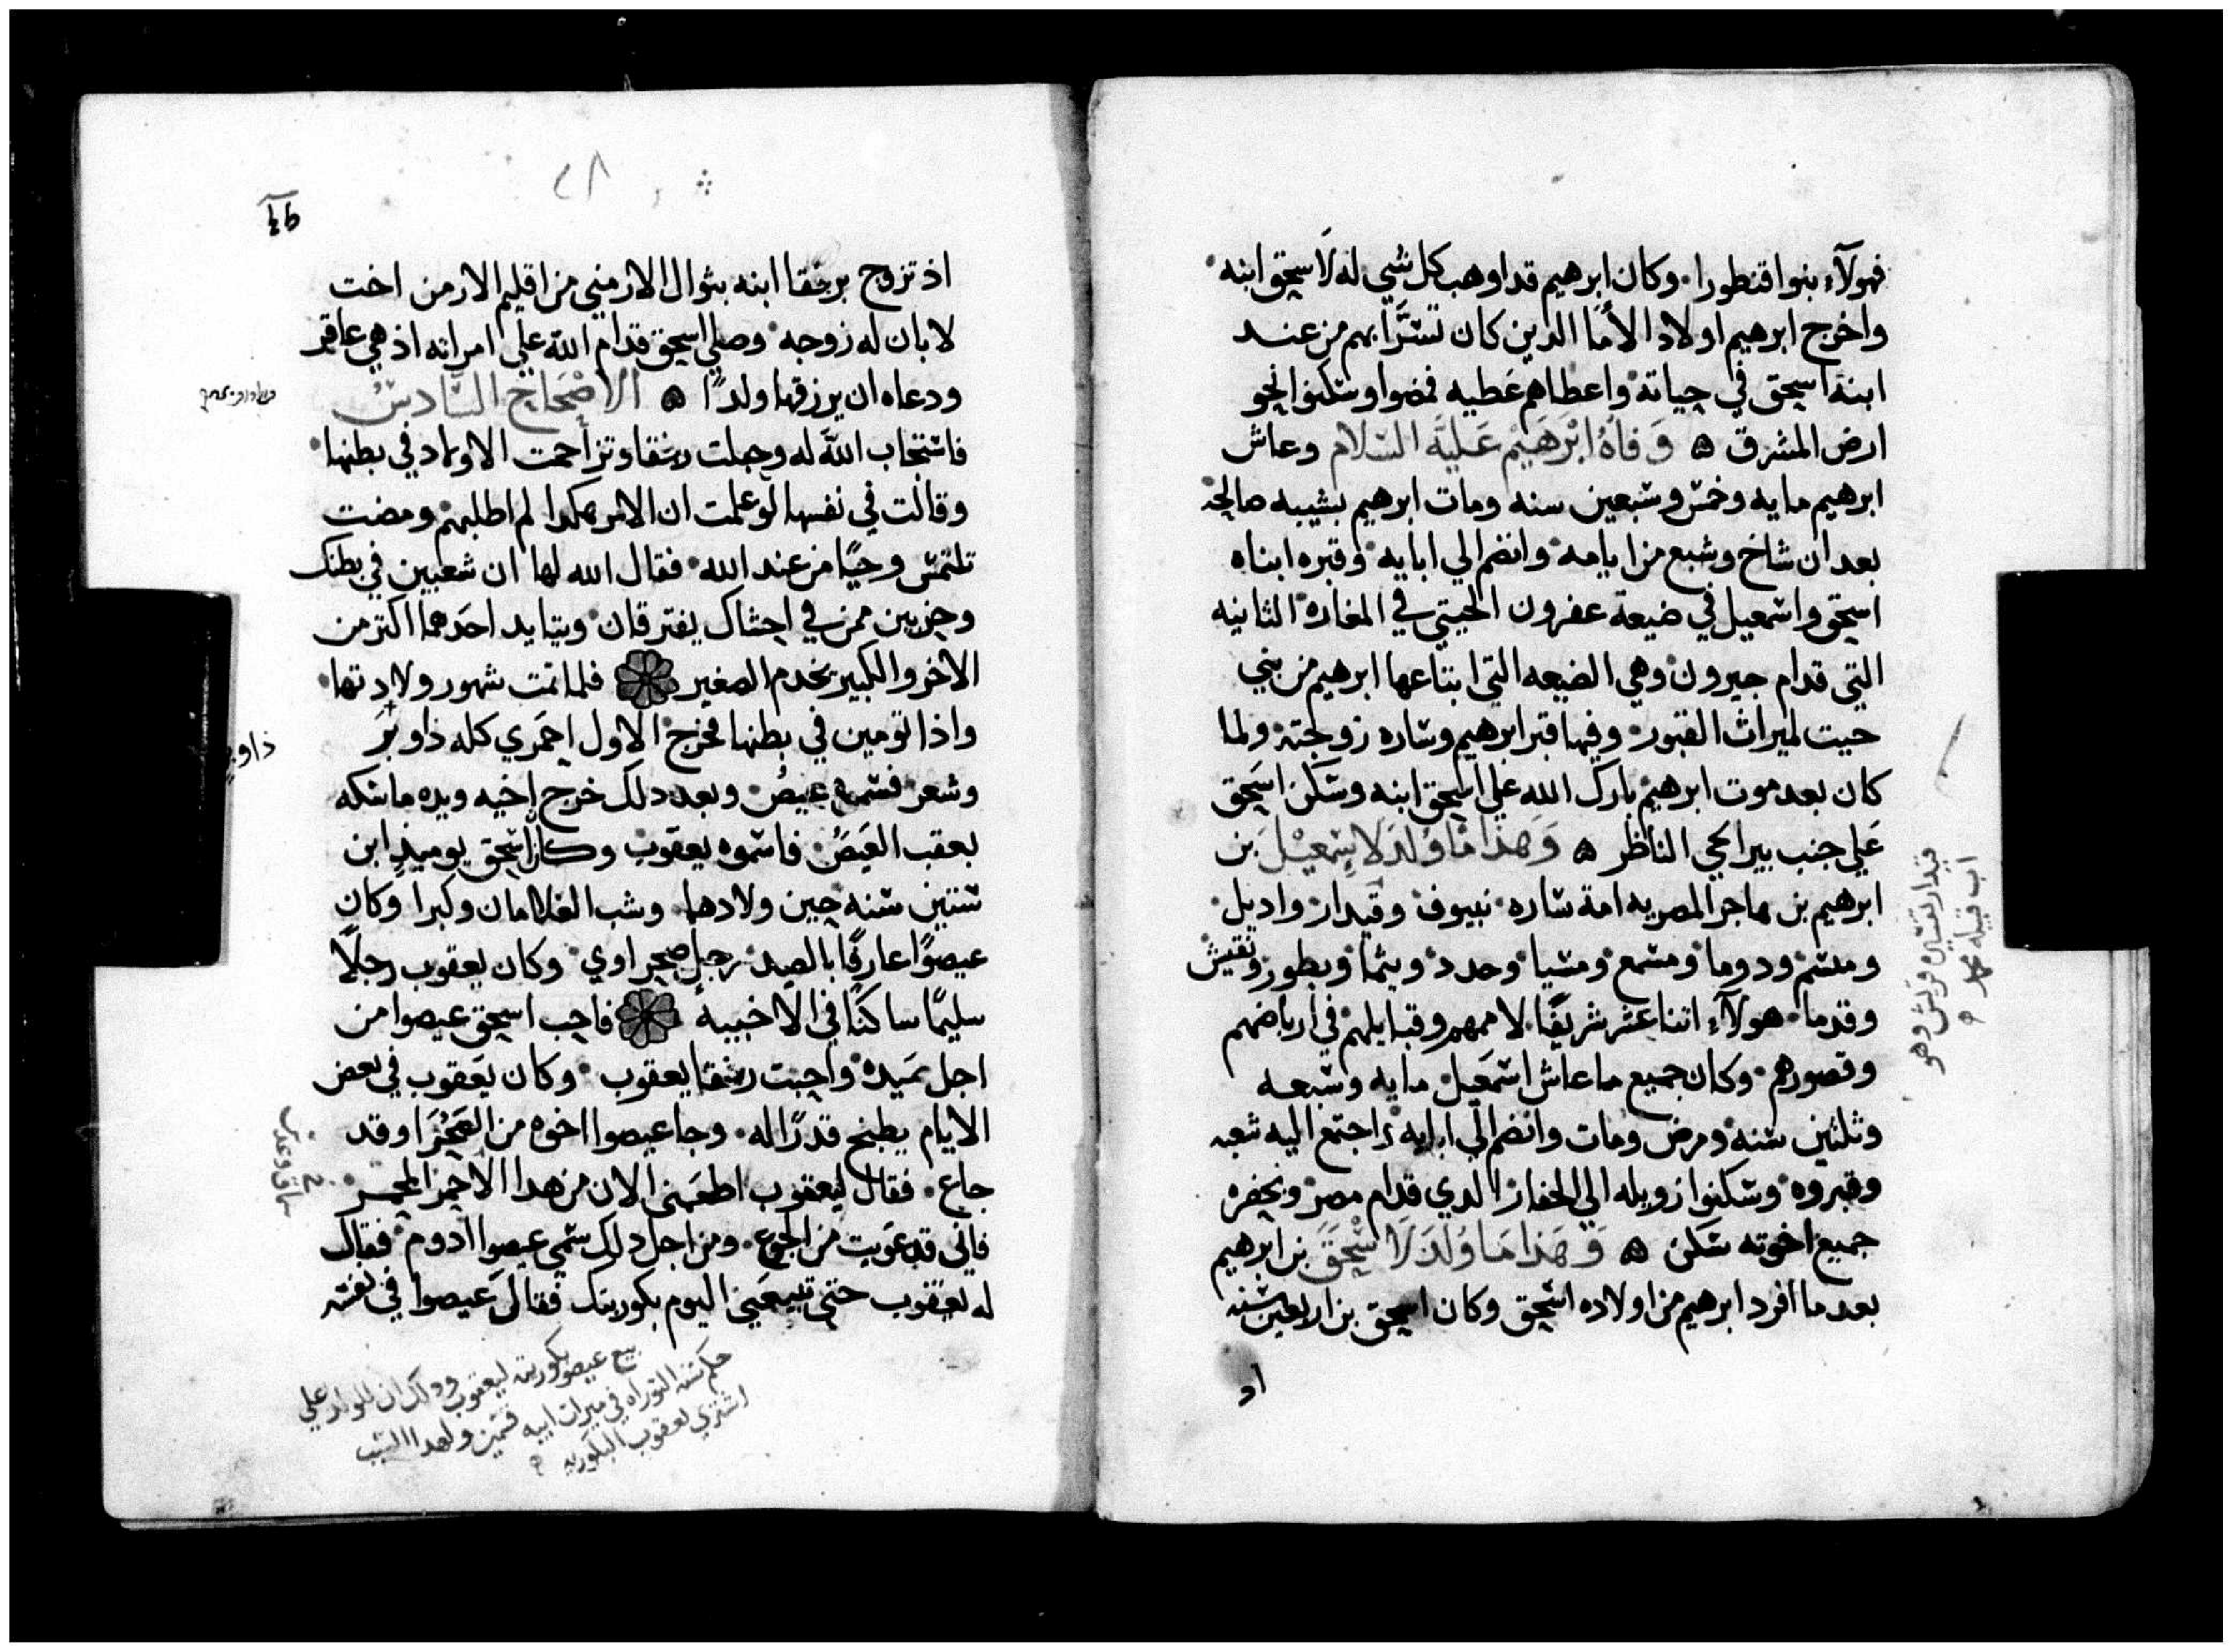 فهولآء بنوا قنطورا. وكان ابرهيم قد اوهب كل شي له لاسحق ابنه
واخرج ابرهيم اولاد الأمَا الدين كان تسرَّا بهم من عند
ابنه اسحق في حياته واعطاهم عَطيه فمضوا وسكنوا نحو
ارض المشرق ۞ وَفاة ابْرَهَيْم عَليَه السلام وعاش
ابرهيم مايه وخمس وسبعين سنه ومات ابرهيم بشيبه صالحه
بعد ان شاخ وشبع من ايامه وانضم الي ابايه وقبره ابناه
اسحق واسمعيل في ضيعة عفرون الحيتي في المغاره الثانيه
التي قدام حبرون وهي الضيعه التي ابتاعها ابرهيم من بني
حيت لميراث القبور وفيها قبر ابرهيم وساره زوجته ولما
كان بعد موت ابرهيم بارك الله علي اسحق ابنه وسَكن اسَحق
عَلي جنب بير الحي الناظر ۞ وَهَذا مَا وُلدَ لاسِمعيْل بن
ابرهيم بن هاجر المصريه امة ساره نبيوف وقيدار واديل
ومسم ودوما ومشمع ومسيا وحدد ويثما ويطور ونفيش
وقدما هولآء اتنا عشر شريفًا لاممهم وقبايلهم في ارباضهم
وقصورهم وكان جميع ما عاش اسمَعيل مايه وسبعه
وثلثين سنه ومرض ومات وانضم الي ابايه واجتمع اليه شعبه
وقبروه وسكنوا زويله الي الحفار الدي قدام مصر وبحفره
جميع اخوته سَكن ۞ وَهَذا مَا وُلدَ لاسْحَقَ بن ابرهيم
بعد ما افرد ابرهيم من اولاده اسحق وكان اسحق بن اربعين سنه
اد
قيدار تفسيره قريش وهو
اب قبيله محمد
٢٨
اذ تزوج برفقا ابنه بثوال الارمني من اقليم الارمن اخت
لابان له زوجه وصلي اسحق قدام الله علي امراته اذ هي عاقر
ودعاه ان يرزقها ولدًا ۞ الاصْحَاح السَّادسُ
فاستجاب اللهَ له وحبلت رفقا وتزاحمت الاولاد في بطنها
وقالت في نفسها لو علمت ان الامر هكدا لم اطلبهم ومضت
تلتمس وحيًا من عند الله فقال الله لها ان شعبين في بطنك
وحزبين ممن في احشاك يفترقان ويتايد احَدهما اكتر من
الاخر والكبير يخدم الصغير فلما تمت شهور ولادتها
واذا تومين في بطنها فخرج الاول احمَري كله ذاو بَر
وشعر فسموه عيصُ وبعد دلك خرج اخيه ويده ماسكه
بعقب العَيصُ فاسموه يعقوب وكان اسَحق يوميذٍ ابن
ستين سنه حين ولادها وشب الغلامان وكبرا وكان
عيصوًا عارفًا بالصيد رجل صحراوي وكان يعقوب رجلاً
سليمًا ساكنًا في الاخبيه فاحب اسحق عيصوا من
اجل صَيده واحبت رفقا يعقوب وكان يَعقوب في بعض
الايام يطبخ قدرًا له وجا عيصوا اخوه من الصَحْرَا وقد
جاع فقال ليعقوب اطعمَني الان من هدا الاحمر المحمر
فاني قد عَويت من الجوع ومن اجل دلك سَمي عيصوا ادوم فقال
له يعقوب حتي تبيعَني اليوم بكوريتك فقال عيصوا في نفسه
ذاوبر
بيع عيصو بكوريته ليعقوب ودلك ان للولد علي
حكم سنه التوراه في ميرات ابيه قسمين ولهدا السبب
اشتري يعقوب البكوريه